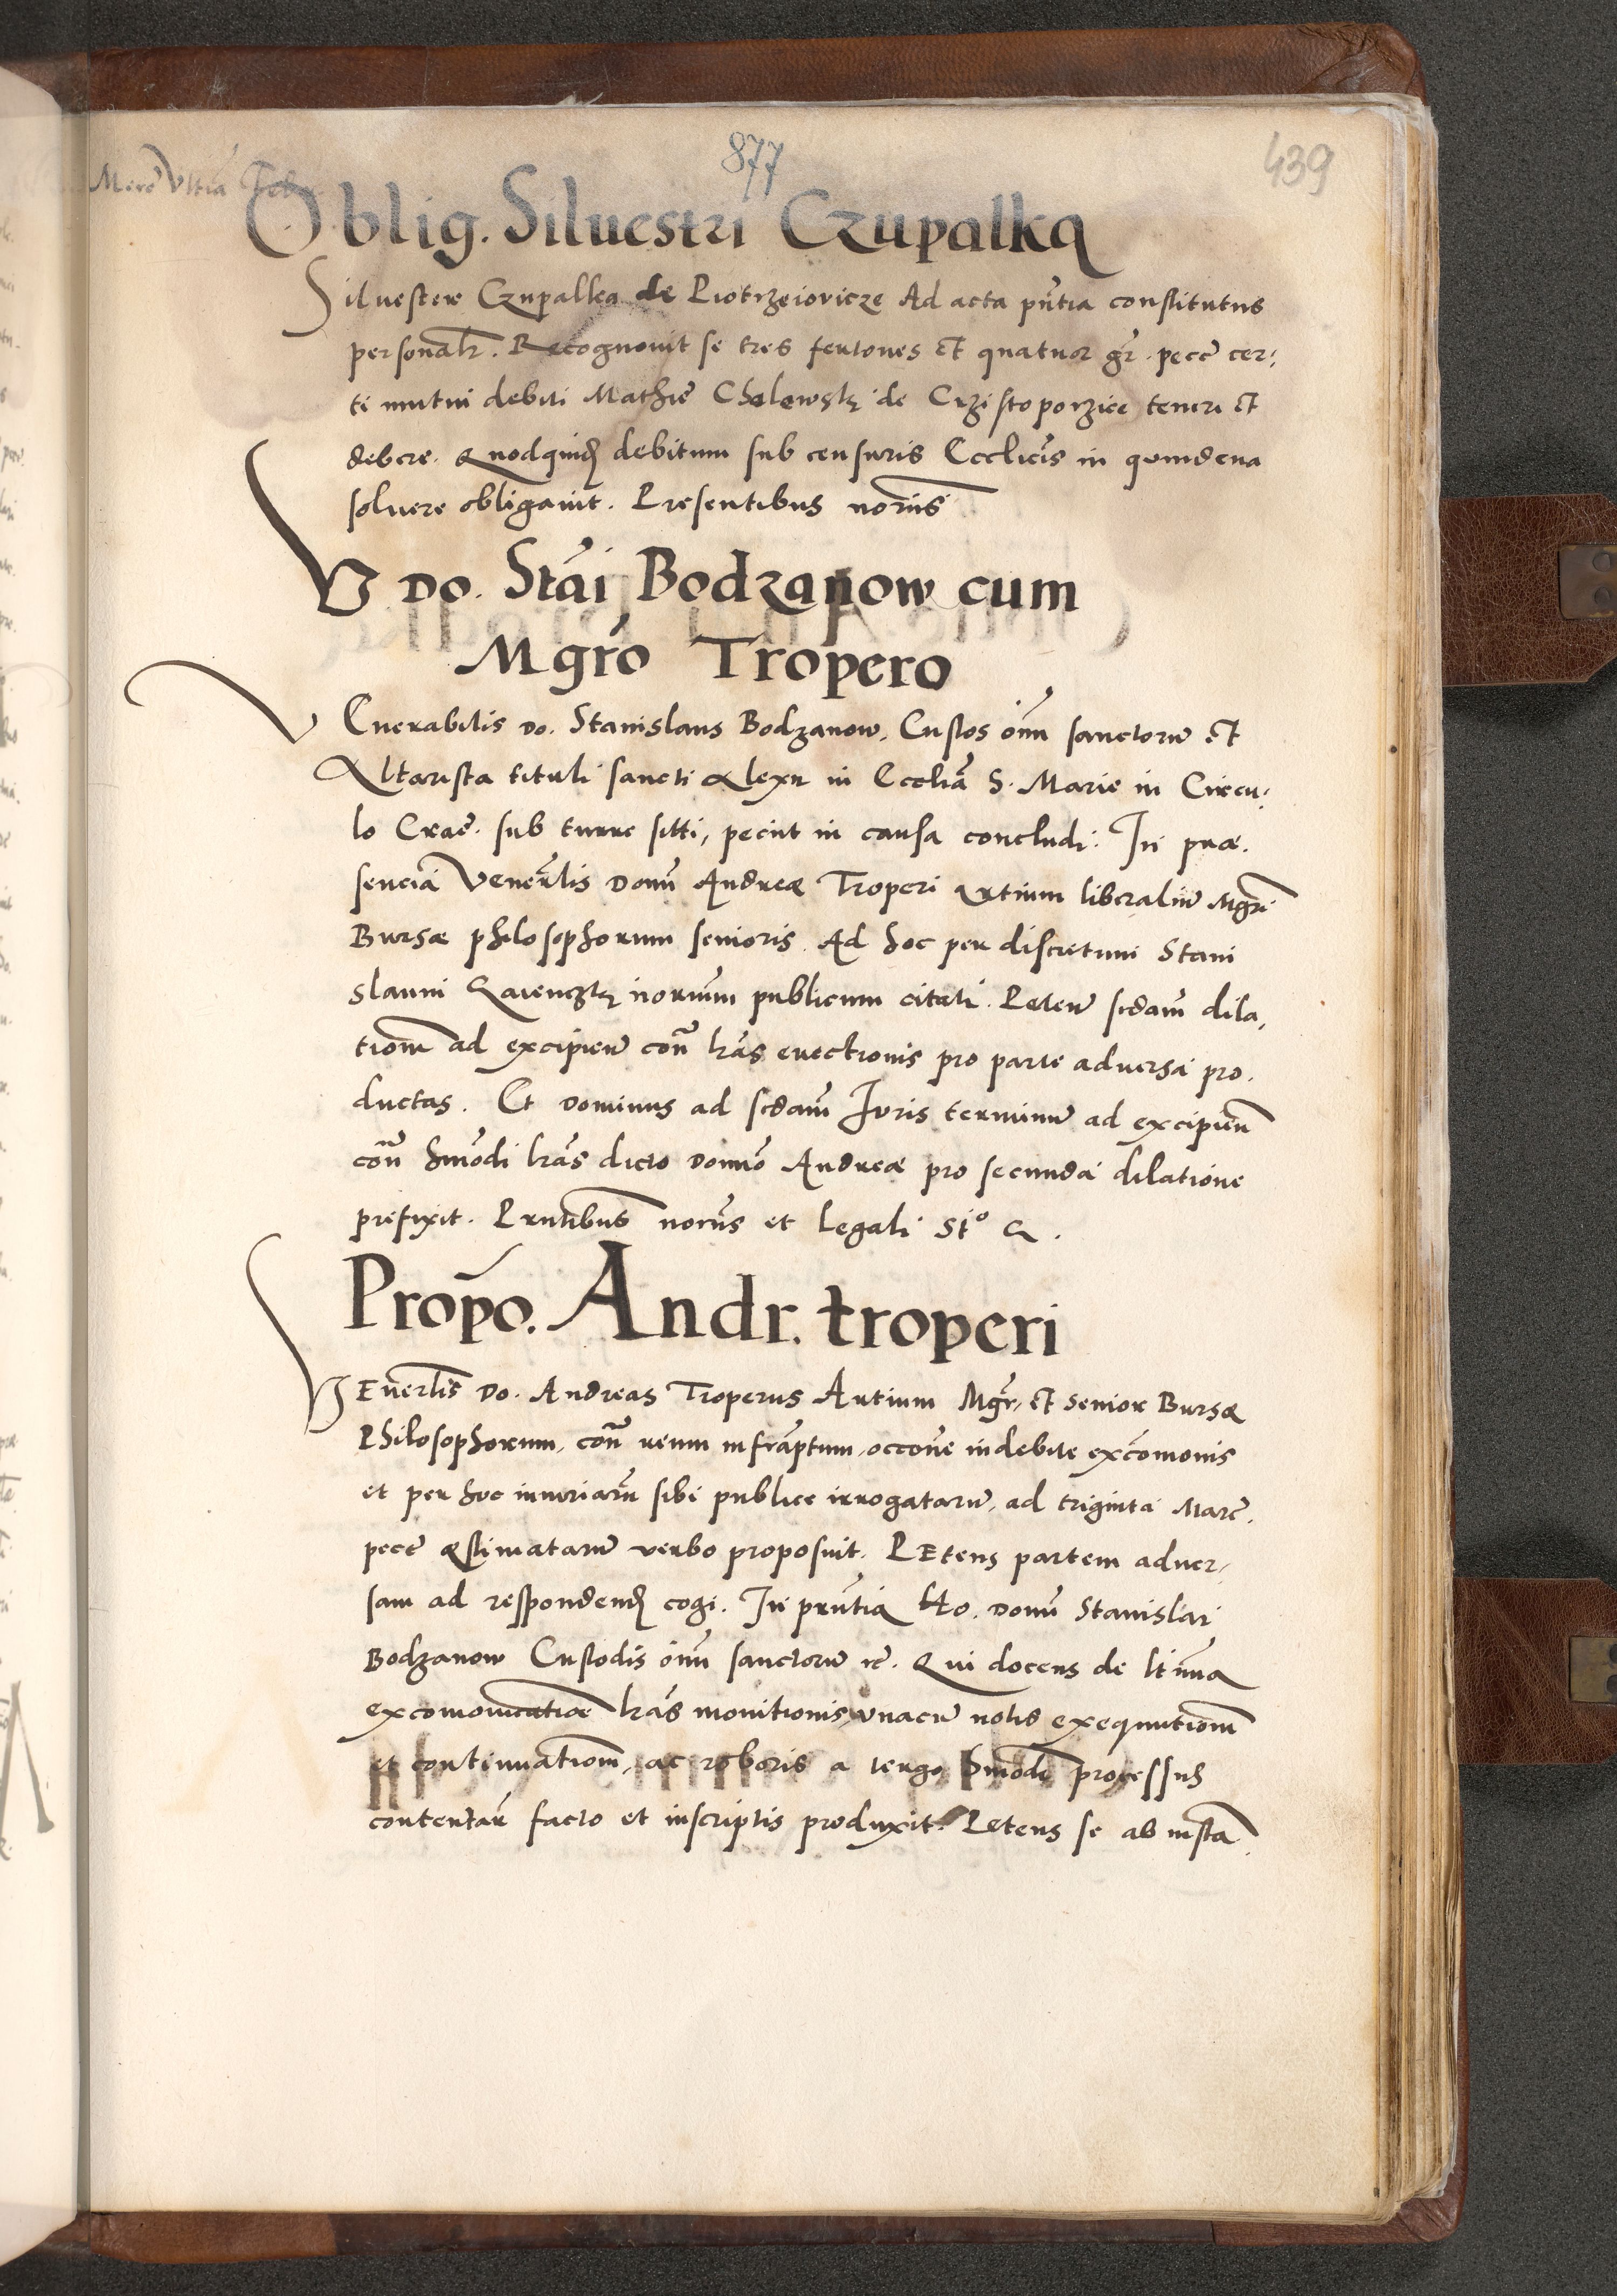 877
439
Merc Vltia Feb
Oblig. Siluestri Czupalka
Siluester Czupalka de Piotrzeiovicze Ad acta pñtia constitutus
personalr. Recognouit se tres fertones et quatuor gr. pecc cer:
ti mutui debiti Mathie Chelewsk de Crzistoporzice teneri et
debere. Quodquid debitum sub censuris Ecclicis in quindena
soluere obligauit. Presentibus noriis
V Do. Stai Bodzanow cum
Mgro Tropero
VEnerabilis Do. Stanislaus Bodzanow, Custos oim sanctoru et
Altarista tituli sancti Alexii in Ecclia S. Marie in Circu:
lo Crac. sub turre siti, petiit in causa concludi. In præ.
sencia Venerlis Domi Andreæ Troperi Artium liberaliu Mgri
Bursæ philosophorum senioris. Ad hoc per discretum Stani
slaum norium publicum citati. Peteñ scdam dila,
tiom ad excipieñ coñ lras euectionis pro parte aduersa pro.
ductas. Et Dominus ad scdam Iuris terminu ad excipieñ
coñ hmodi lras dicto Domio Andreæ pro secunda dilatione
prefixit. Prntibus noriis et Legali Stº
Propo. Andr. troperi
VEnerlis Do. Andreas Troperus Artium Mgr, et Senior Bursæ
Philosophorum, coñ reum infraptum, occone indebite excomonis
et per hoc iniuriaru sibi publice irrogataru, ad triginta Marc.
pecc æstimataru verbo proposuit. PEtens partem aduer,
sam ad respondend cogi. In prntia Ho. Domi Stanislai
Bodzanow Custodis oim sanctoru rc. Qui docens de ltima
excomonicatioe lras monitionis, vnacu notis exequutiom
et continuatiom, ac roboris a tergo hmodi processus
contentar facto et inscriptis produxit. Petens se ab insta